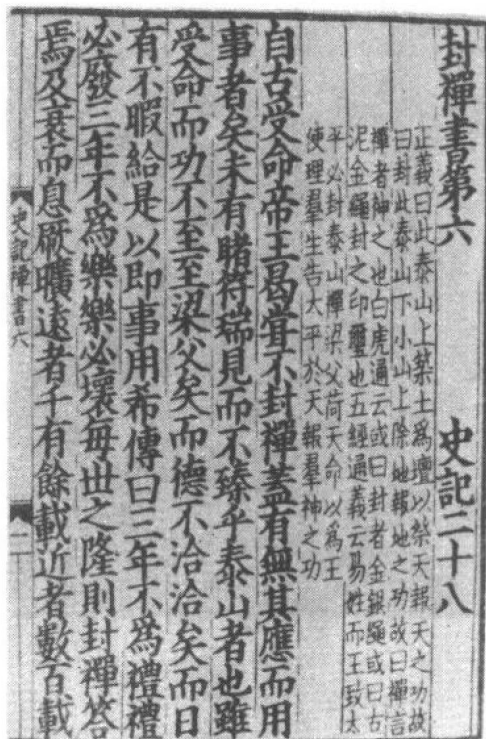 封禪書第六　史記二十八
正義曰此泰山上築土爲壇以祭天報天之功故
曰封此泰山下小山上除地報地之功故曰禪言
禪者神之也白虎通云或曰封者金銀繩或曰古
泥金繩封之印璽也五經通義云易姓而王致太
平必封泰山禪梁父荷天命以爲王
使理羣生告大平於天報羣神之功
自古受命帝王曷甞不封禪蓋有無其應而用
事者矣未有睹符瑞見而不臻乎泰山者也雖
受命而功不至至梁父矣而德不洽洽矣而日
有不暇給是以即事用希傳曰三年不爲禮禮
必廢三年不爲樂樂必壞每世之隆則封禪答
焉及衰而息厥曠遠者千有餘載近者數百載
史記禪書六